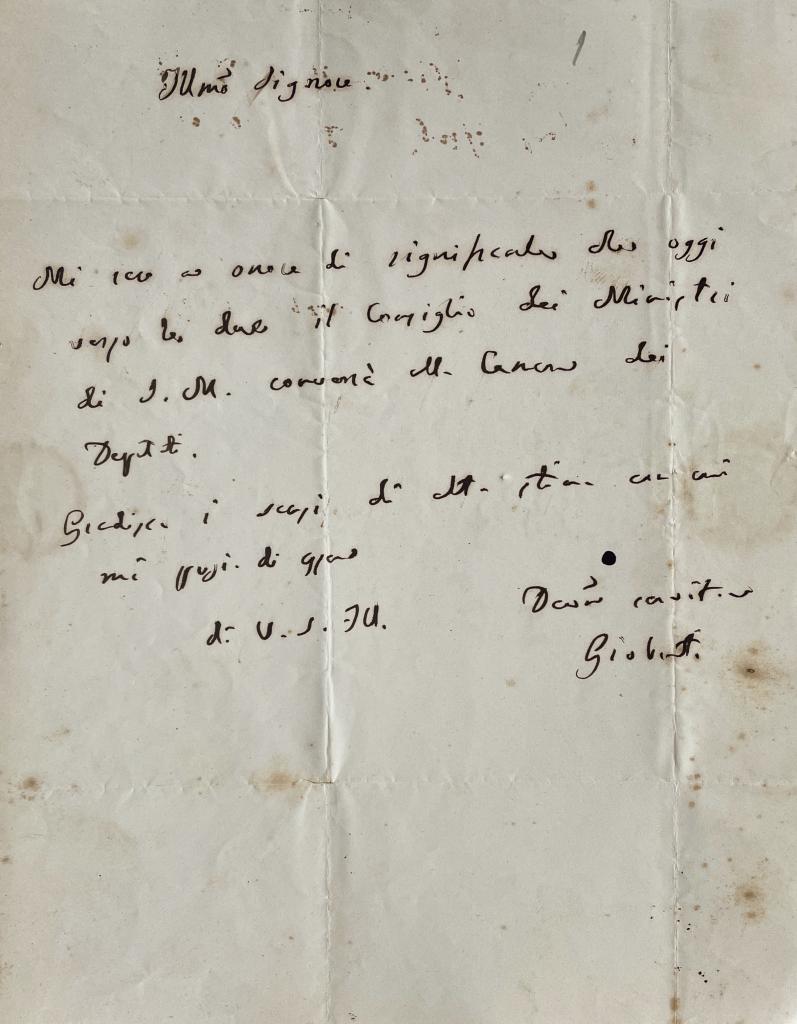 1
Illmo Signore.
Mi reco a onore di significarle che oggi
verso le due il Consiglio dei Ministri
di S. M. converrà alla Camera dei
Deputati.
Gradisca i sensi di alta stima con cui
mi pregio di essere
di V. S. Ill.
Devmo servitore
Gioberti.